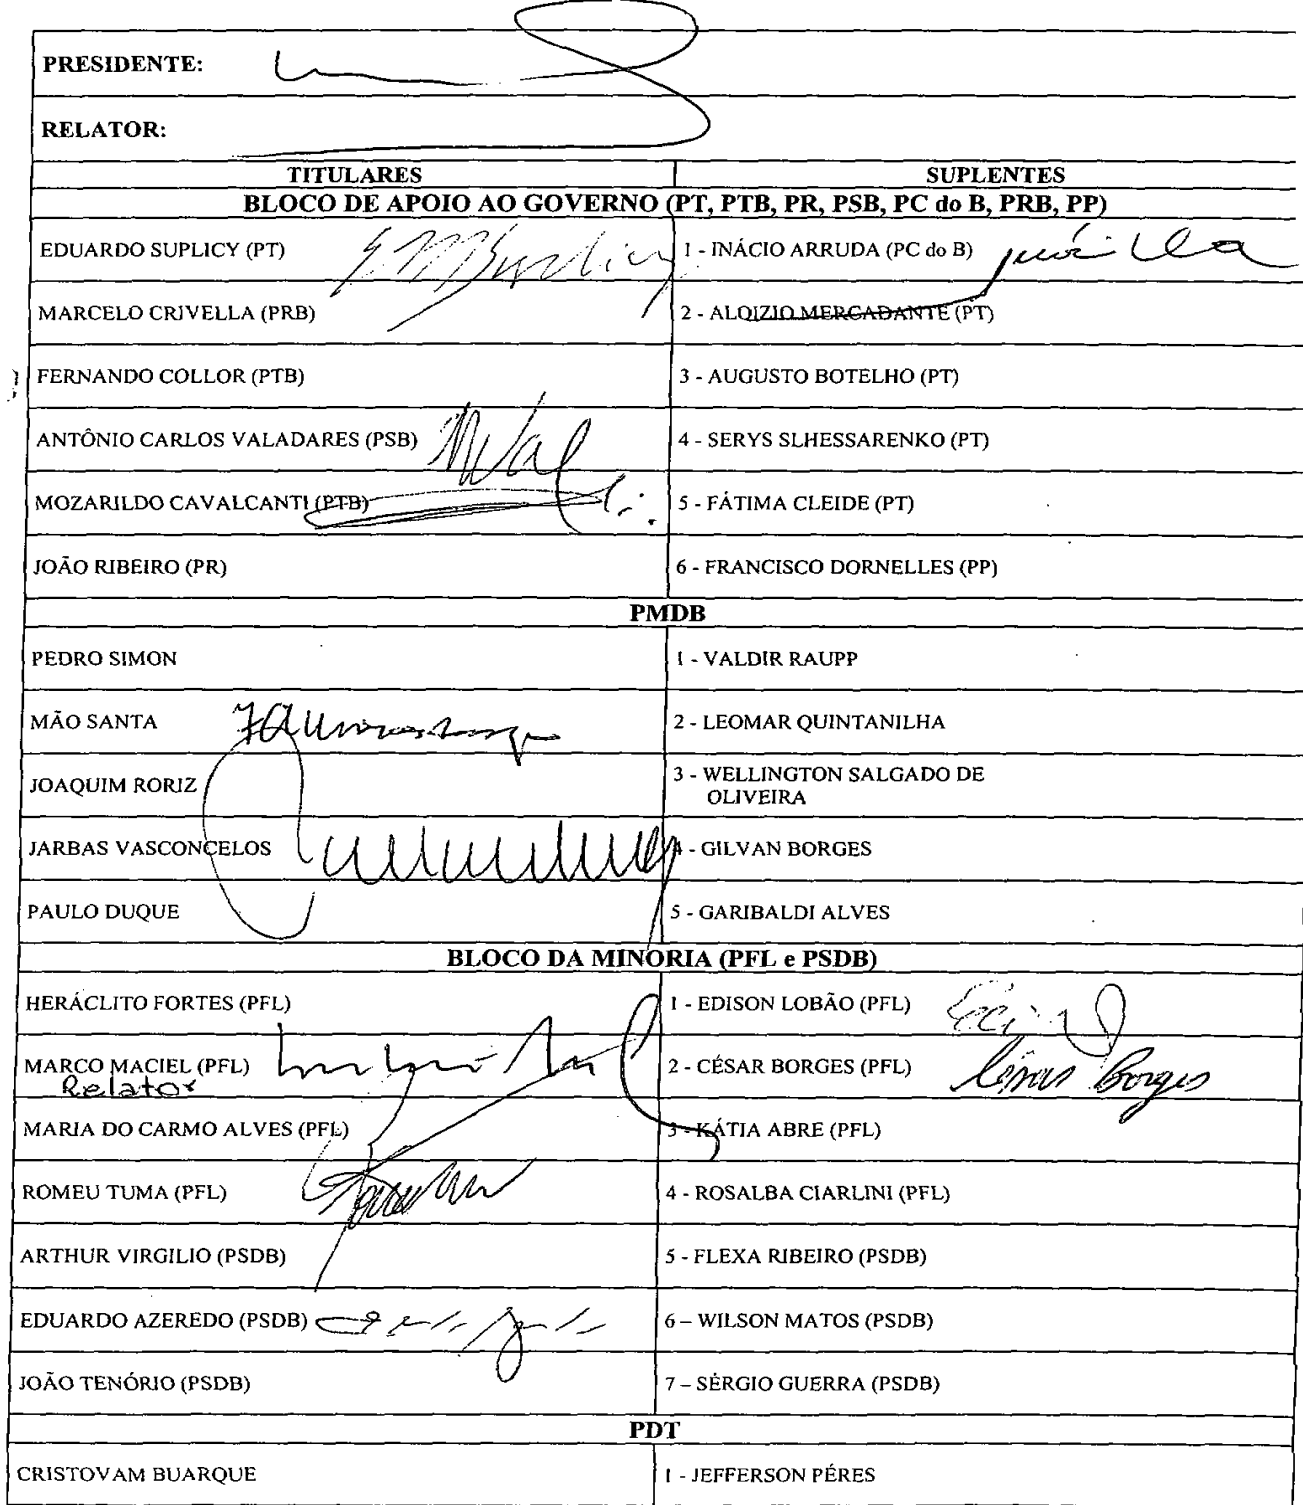 PRESIDENTE:
RELATOR:
TITULARES SUPLENTES
BLOCO DE APOIO AO GOVERNO (PT, PTB, PR, PSB, PC do B, PRB, PP)
EDUARDO SUPLICY (PT) 1 - INÁCIO ARRUDA (PC do B)
MARCELO CRIVELLA (PRB) 2 - ALOIZIO MERCADANTE (PT)
FERNANDO COLLOR (PTB) 3 - AUGUSTO BOTELHO (PT)
ANTÔNIO CARLOS VALADARES (PSB) 4 - SERYS SLHESSARENKO (PT)
MOZARILDO CAVALCANTI (PTB) 5 - FÁTIMA CLEIDE (PT)
JOÃO RIBEIRO (PR) 6 - FRANCISCO DORNELLES (PP)
PMDB
PEDRO SIMON 1 - VALDIR RAUPP
MÃO SANTA 2 - LEOMAR QUINTANILHA
JOAQUIM RORIZ 3 - WELLINGTON SALGADO DE
OLIVEIRA
JARBAS VASCONCELOS 4 - GILVAN BORGES
PAULO DUQUE 5 - GARIBALDI ALVES
BLOCO DA MINORIA (PFL e PSDB)
HERÁCLITO FORTES (PFL) 1 - EDISON LOBÃO (PFL)
MARCO MACIEL (PFL) 2 - CÉSAR BORGES (PFL) César Borges
Relator
MARIA DO CARMO ALVES (PFL) 3 - KÁTIA ABRE (PFL)
ROMEU TUMA (PFL) 4 - ROSALBA CIARLINI (PFL)
ARTHUR VIRGILIO (PSDB) 5 - FLEXA RIBEIRO (PSDB)
EDUARDO AZEREDO (PSDB) 6 – WILSON MATOS (PSDB)
JOÃO TENÓRIO (PSDB) 7 – SÉRGIO GUERRA (PSDB)
PDT
CRISTOVAM BUARQUE 1 - JEFFERSON PÉRES